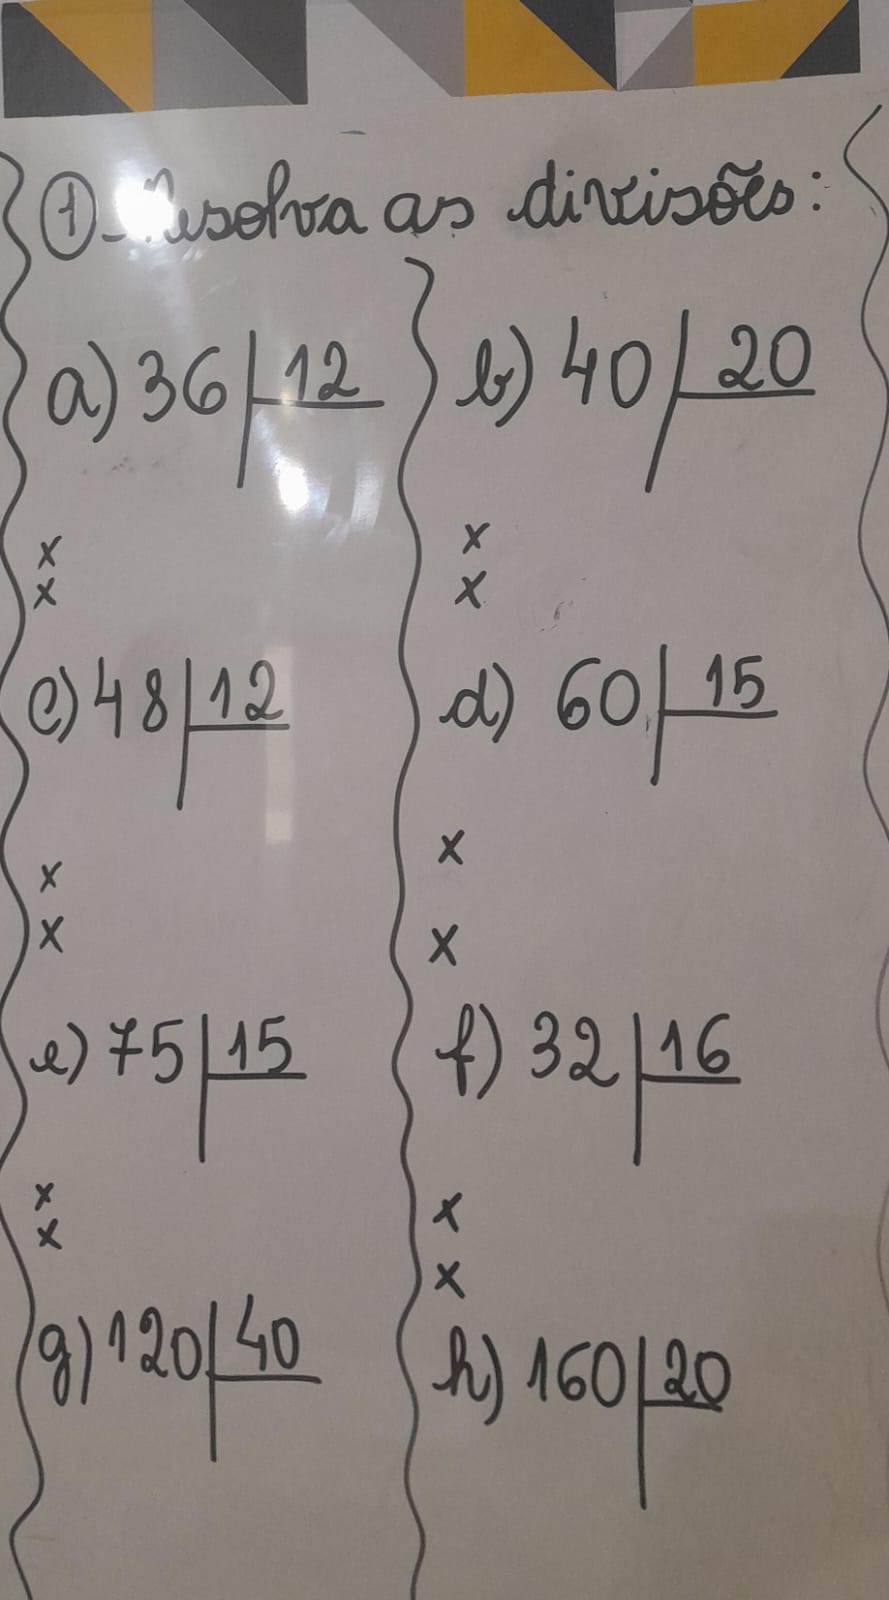 1) Resolva as divisões:
a) 36 | 12
b) 40 | 20
x
x
x
x
c) 48 | 12
d) 60 | 15
x
x
x
x
e) 75 | 15
f) 32 | 16
x
x
x
x
g) 120 | 40
h) 160 | 20